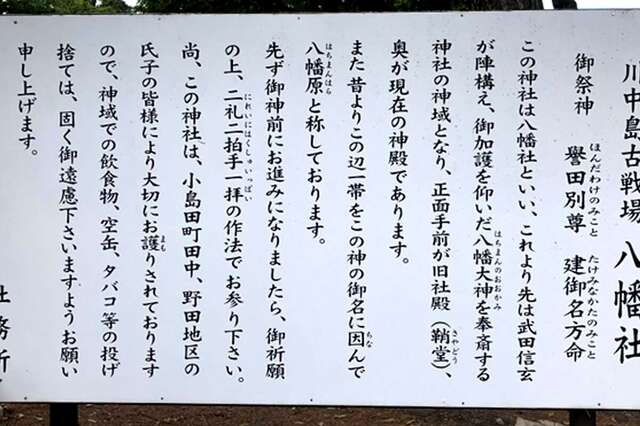 川中島古戦場 八幡社
御祭神 誉田別尊 建御名方命
ほんだわけのみこと たけみなかたのみこと
この神社は八幡社といい、これより先は武田信玄
が陣構え、御加護を仰いだ八幡大神を奉斎する
はちまんのおおかみ
神社の神域となり、正面手前が旧社殿（鞘堂）、
さやどう
奥が現在の神殿であります。
また昔よりこの辺一帯をこの神の御名に因んで
ちな
八幡原と称しております。
はちまんはら
先ず御神前にお進みになりましたら、御祈願
の上、二礼二拍手一拝の作法でお参り下さい。
にれいにはくしゅいっぱい
尚、この神社は、小島田町田中、野田地区の
氏子の皆様により大切にお護りされております
まも
ので、神域での飲食物、空缶、タバコ等の投げ
捨ては、固く御遠慮下さいますようお願い
申し上げます。
社務所